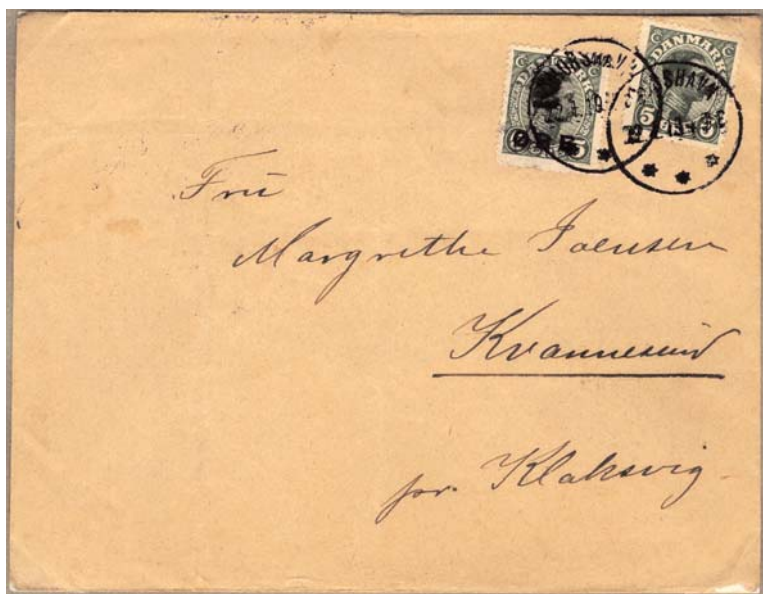 DANMARK
5
ØRE
DANMARK
5
THORSHAVN
Fru
Margrethe Joensen
Kvannesund
pr. Klaksvig